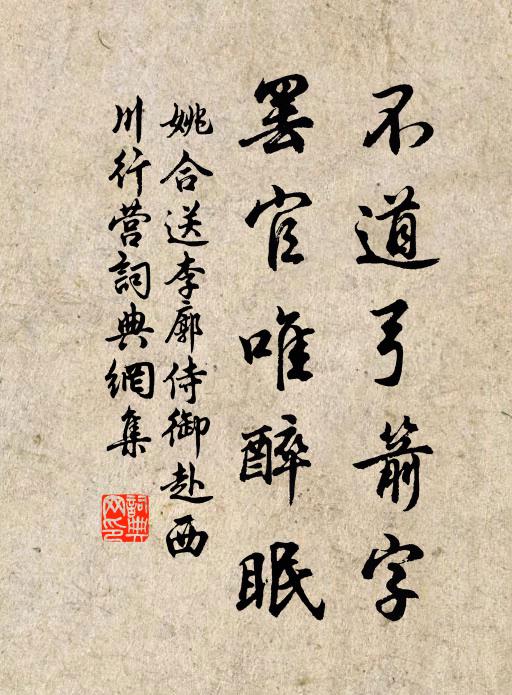 不道弓箭字
罢官唯醉眠
姚合送李廓侍御赴西
川行营詞典網集
詞典网印